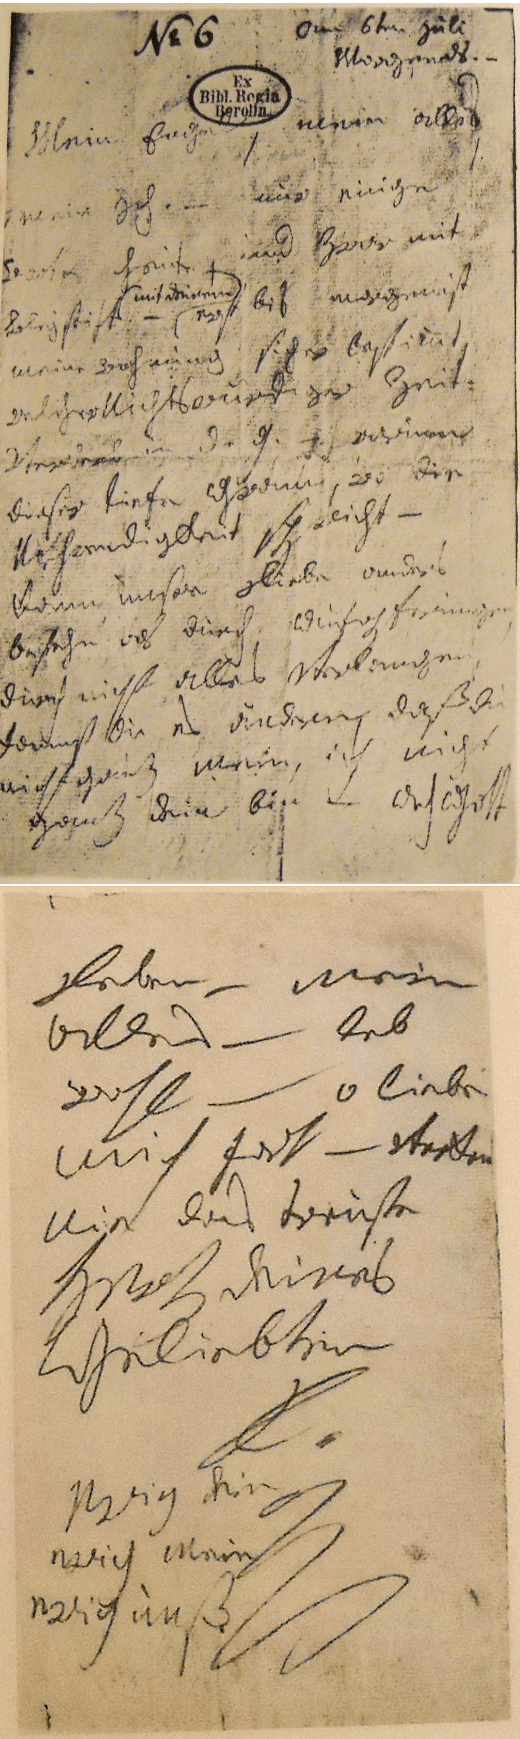 № 6
Am 6ten Juli
Morgends. –
Ex
Bibl. Regia
Berolin.
Mein Engel, mein alles
mein Ich. – nur einige
Worte heute, und zwar mit
Bleystift – (mit deinem)
erst bis morgen ist
meine Wohnung sicher bestimmt,
welcher Nichtswürdiger Zeit-
Verderb in d. g. – warum
dieser tiefe Gram, wo die
Nothwendigkeit spricht –
Kann unsre Liebe anders
bestehn als durch Aufopferungen,
durch nicht alles verlangen,
kannst du es ändern, daß du
nicht ganz mein, ich nicht
ganz dein bin – Ach Gott
Leben – mein
alles – leb
wohl – o liebe
mich fort –
nie das treuste
Herz deines
Geliebten
L.
ewig dein
ewig mein
ewig unß